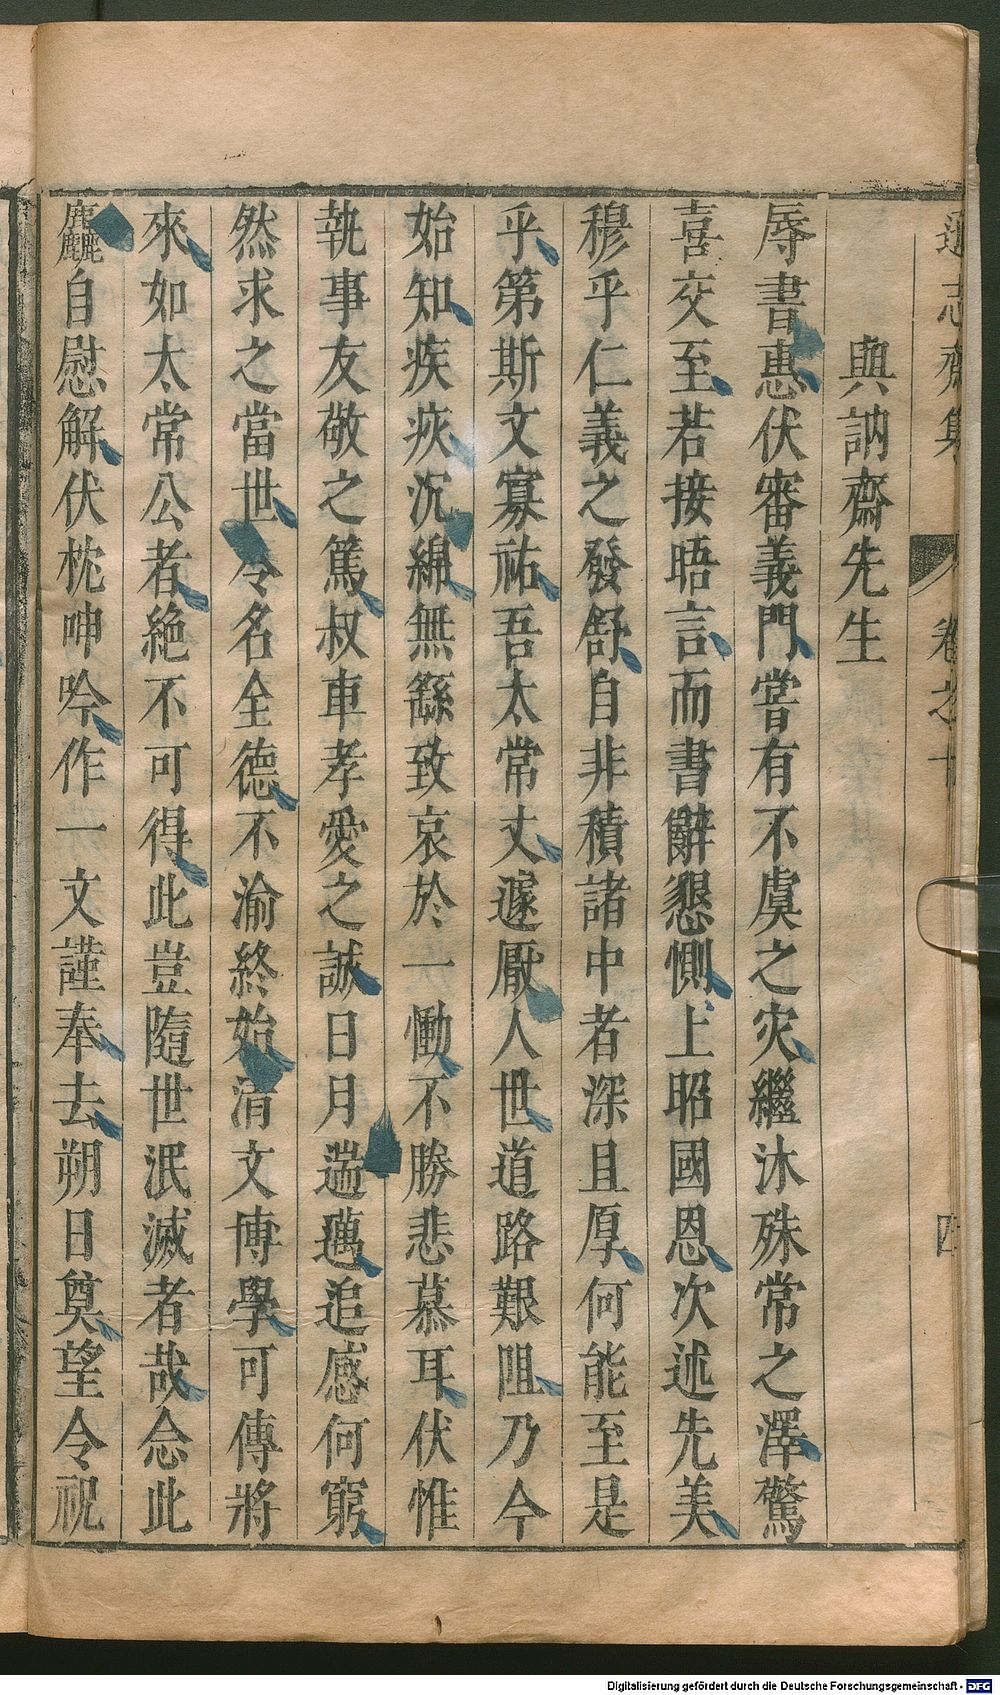 遜志齋集 卷之十 四
與訥齋先生
辱書惠伏審義門嘗有不虞之灾繼沐殊常之澤驚
喜交至若接晤言而書辭懇惻上昭國恩次述先美
穆乎仁義之發舒自非積諸中者深且厚何能至是
乎第斯文寡祐吾太常丈遽厭人世道路艱阻乃今
始知疾疢沉綿無繇致哀於一慟不勝悲慕耳伏惟
執事友敬之篤叔車孝愛之誠日月遄邁追感何窮
然求之當世令名全德不渝終始清文博學可傳將
來如太常公者絶不可得此豈隨世泯滅者哉念此
麤自慰解伏枕呻吟作一文謹奉去朔日奠望令祝
Digitalisierung gefördert durch die Deutsche Forschungsgemeinschaft - DFG